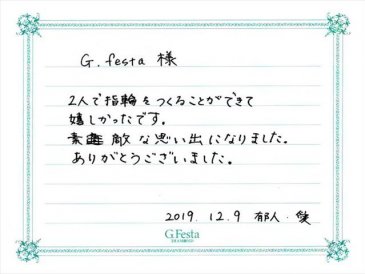 G.festa 様
2人で指輪をつくることができて
嬉しかったです。
素敵な思い出になりました。
ありがとうございました。
2019.12.9 郁人・
G.Festa
DIAMOND